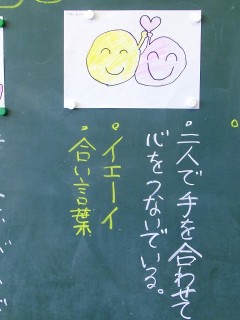 ・二人で手を合わせて
心をつないでいる。
・イエーイ
合い言葉